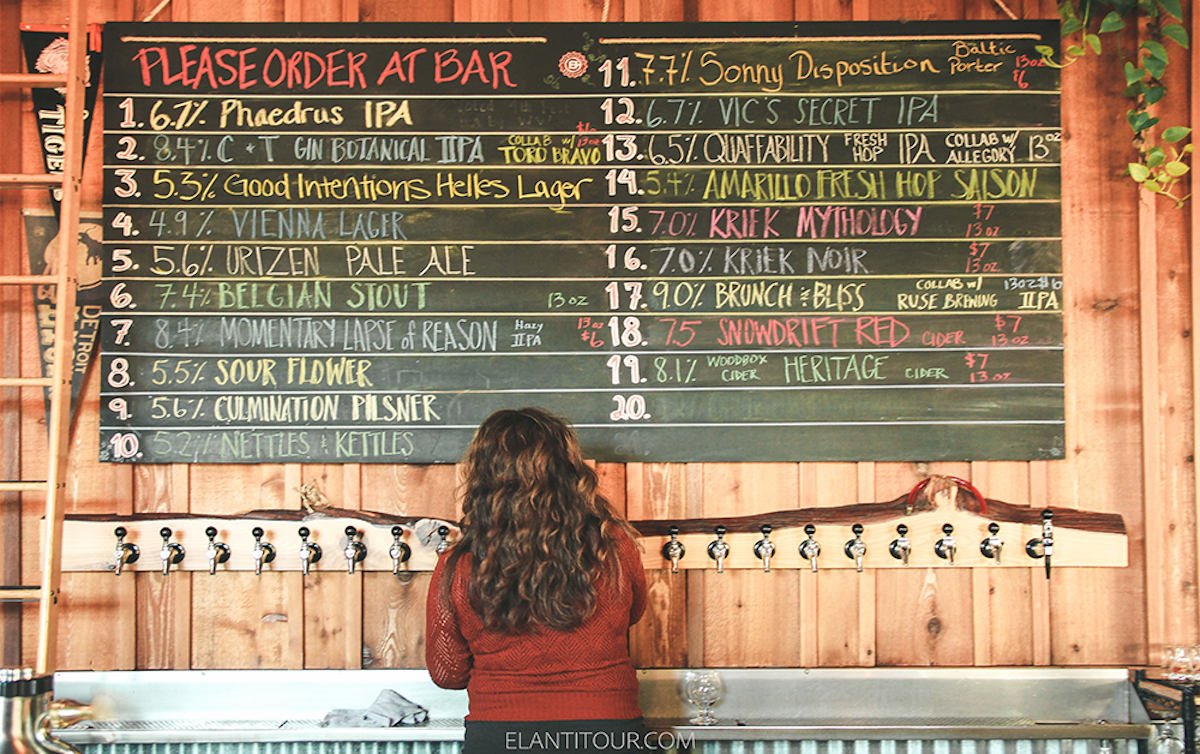 PLEASE ORDER AT BAR
1. 6.7% Phaedrus IPA
2. 8.4% C + T GIN BOTANICAL IIPA COLLAB W/ 13oz
TORO BRAVO
3. 5.3% Good Intentions Helles Lager
4. 4.9% VIENNA LAGER
5. 5.6% URIZEN PALE ALE
6. 7.4% BELGIAN STOUT 13 oz
7. 8.4% MOMENTARY LAPSE of REASON Hazy IIPA 13 oz $6
8. 5.5% SOUR FLOWER
9. 5.6% CULMINATION PILSNER
10. 5.2% NETTLES & KETTLES
11. 7.7% Sonny Disposition Baltic Porter 13oz $6
12. 6.7% VIC'S SECRET IPA
13. 6.5% QUAFFABILITY FRESH HOP IPA COLLAB W/ ALLEGORY 13oz
14. 5.4% AMARILLO FRESH HOP SAISON
15. 7.0% KRIEK MYTHOLOGY $7 13 oz
16. 7.0% KRIEK NOIR $7 13 oz
17. 9.0% BRUNCH & BLISS COLLAB W/ RUSE BREWING 13oz $6 IIPA
18. 7.5 SNOWDRIFT RED CIDER $7 13 oz
19. 8.1% WOODBOX CIDER HERITAGE CIDER $7 13 oz
20.
DETROIT
ELANTITOUR.COM